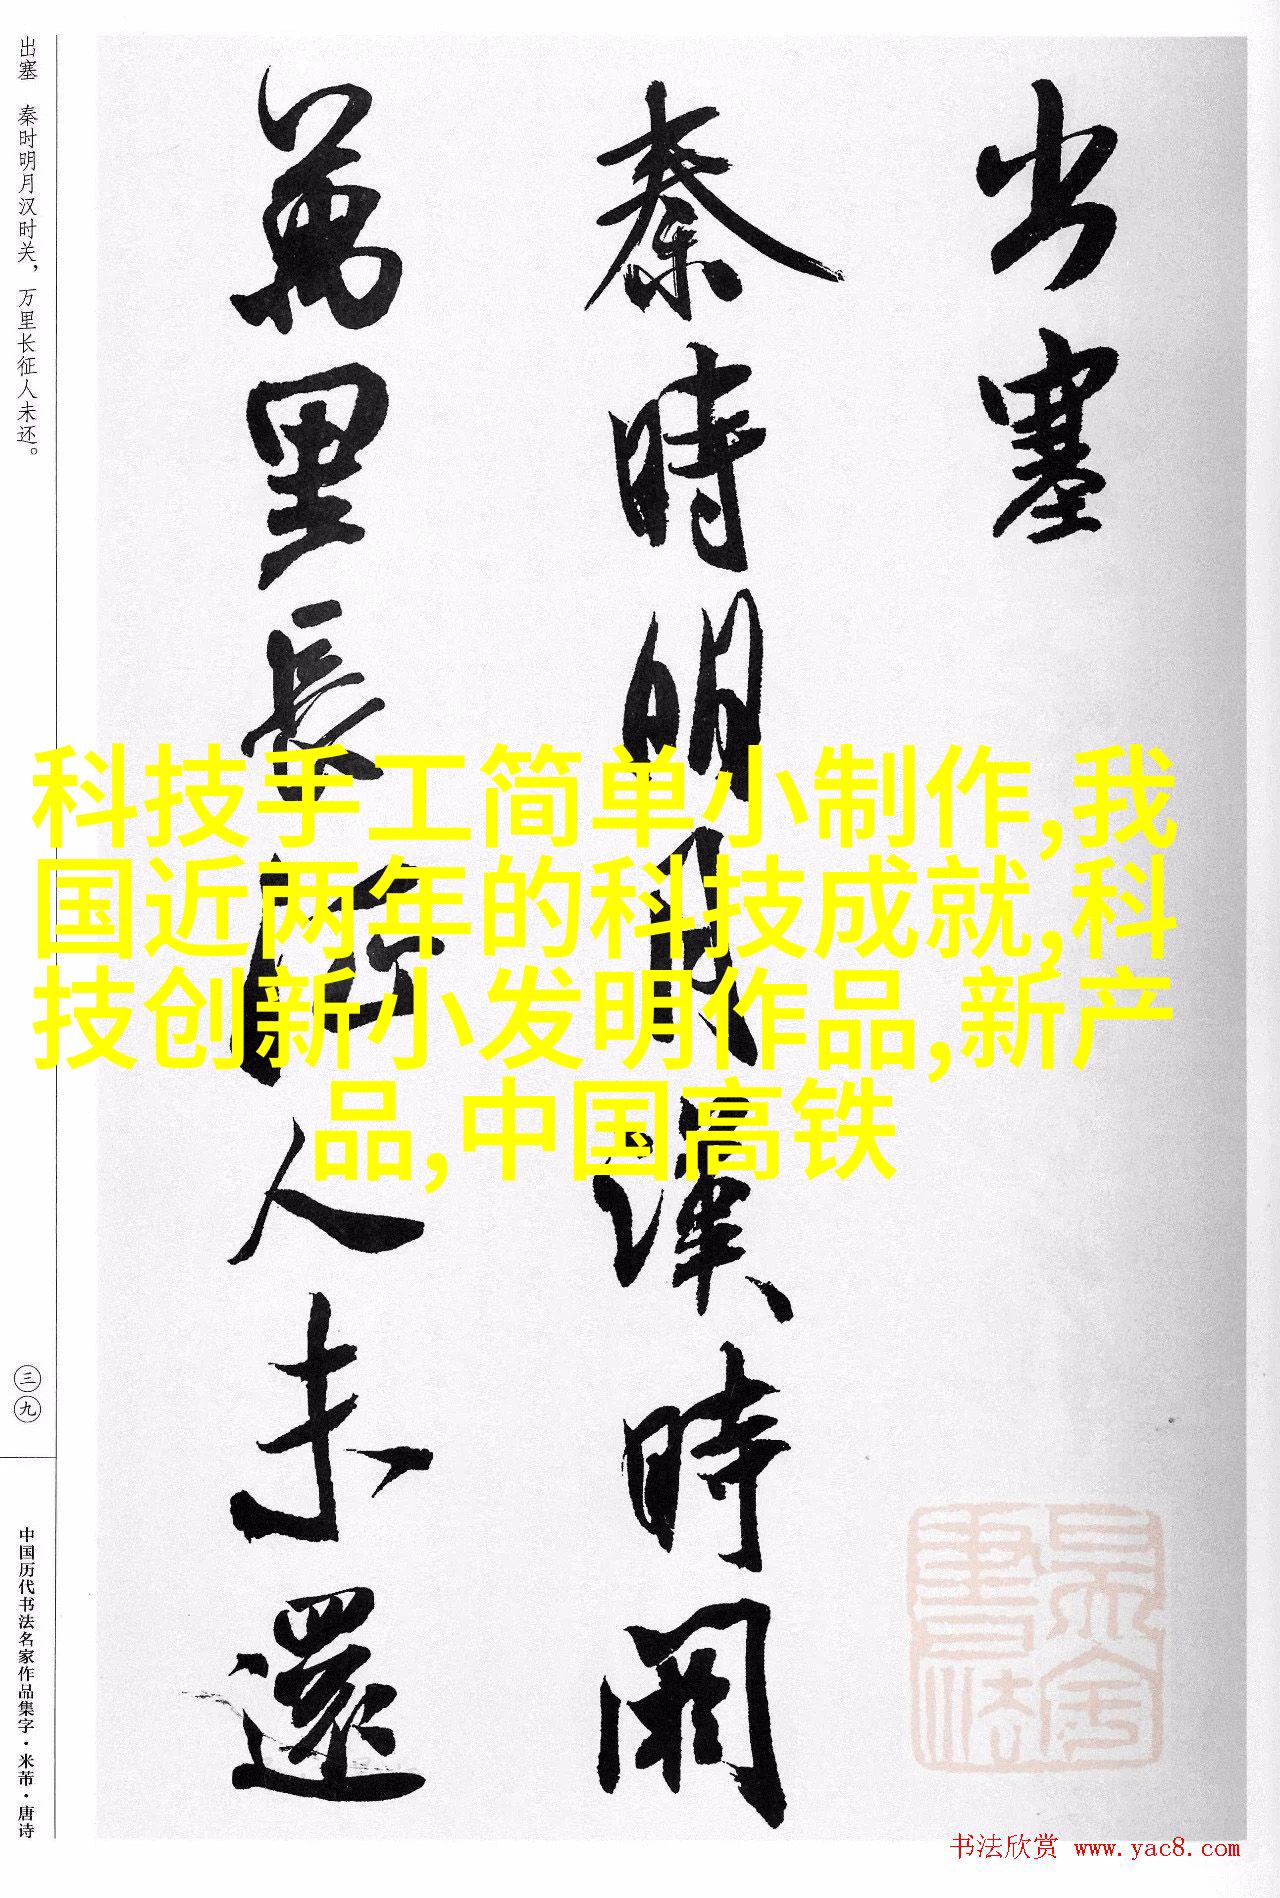 出塞
秦時明月漢時関
萬里長征人未還
出塞 秦时明月汉时关，万里长征人未还。
三九
中国历代书法名家作品集字·米芾·唐诗
科技手工简单小制作,我
国近两年的科技成就,科
技创新小发明作品,新产
品,中国高铁
书法欣赏 www.yac8.com